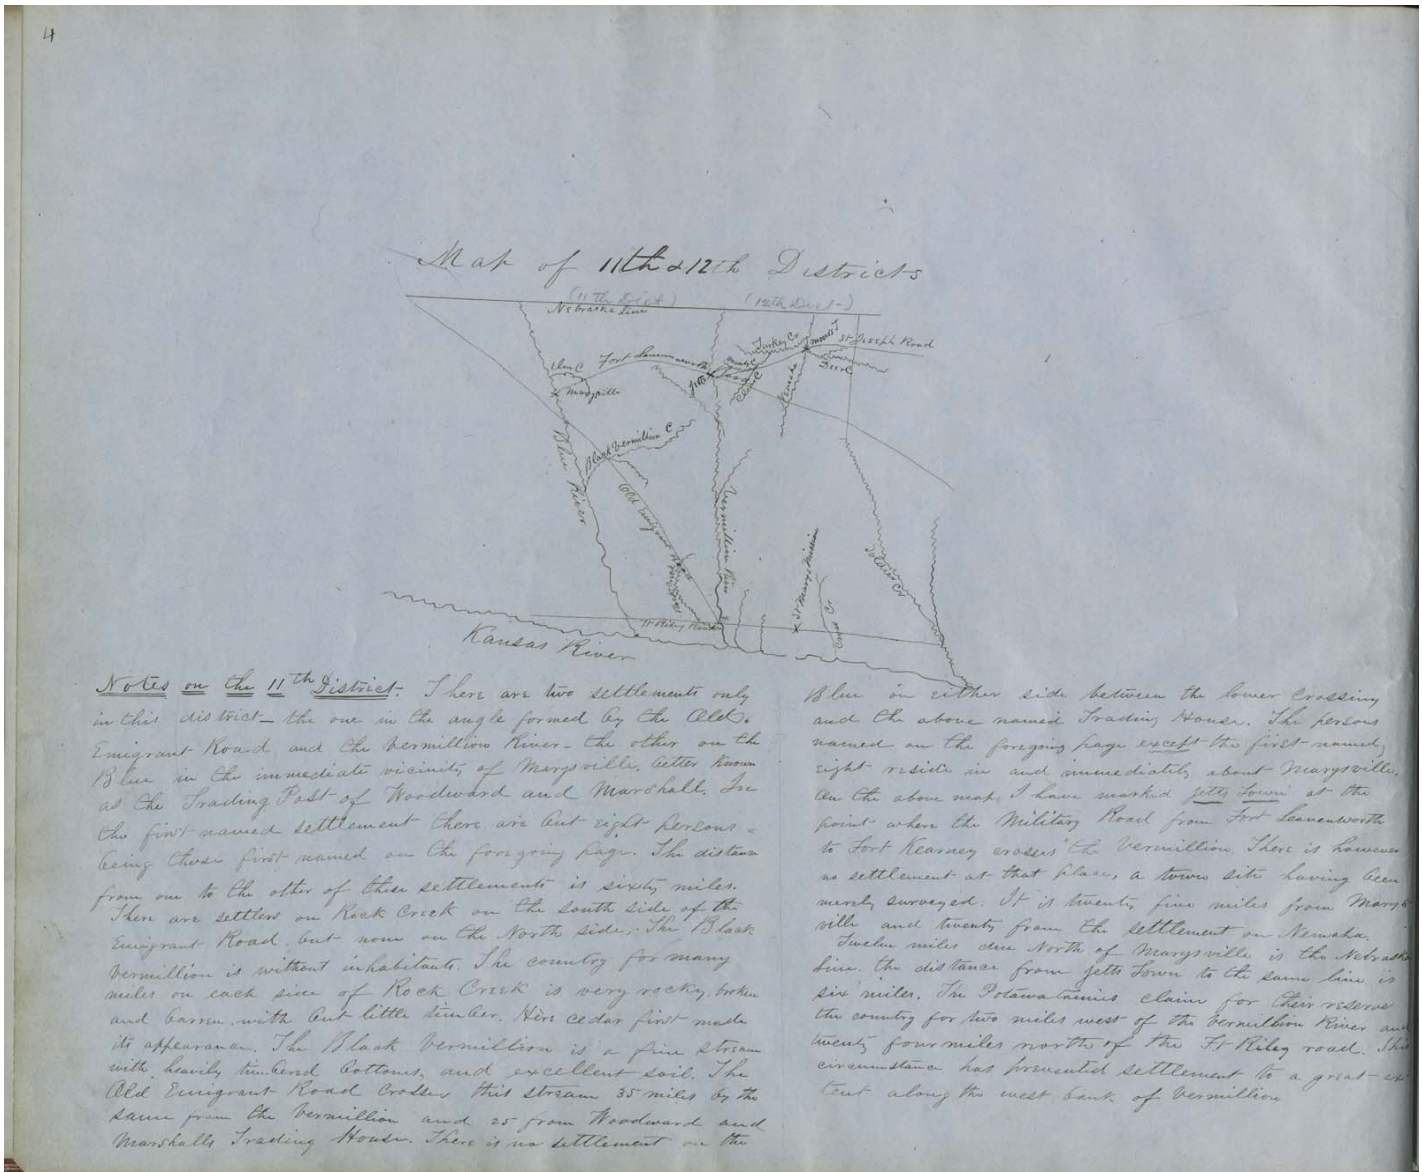 4
Map of 11th & 12th Districts
(11th Dist) (12th Dist)
Nebraska Line
St Joseph Road
Turkey Cr
Elm C
Fort Leavenworth
Deer C
Clear C
Nemaha
Marysville
Black Vermillion C
Blue River
Old Emigrant Road
Vermillion River
St Marys Mission
Soldier Cr
Cross Cr
Ft Riley Road
Kansas River
Notes on the 11th District. There are two settlements only
in this district — the one in the angle formed by the Old
Emigrant Road and the Vermillion River — the other on the
Blue in the immediate vicinity of Marysville, better known
as the Trading Post of Woodward and Marshall. In
the first named settlement there are but eight persons —
being those first named on the foregoing page. The distance
from one to the other of these settlements is sixty miles.
There are settlers on Rock Creek on the south side of the
Emigrant Road, but none on the North side. The Black
Vermillion is without inhabitants. The country for many
miles on each side of Rock Creek is very rocky, broken
and barren, with but little timber. Here cedar first made
its appearance. The Black Vermillion is a fine stream
with heavily timbered bottoms, and excellent soil. The
Old Emigrant Road crosses this stream 35 miles by the
same from the Vermillion and 25 from Woodward and
Marshalls Trading House. There is no settlement on the
Blue on either side between the lower crossing
and the above named Trading House. The persons
named on the foregoing page except the first named
eight reside in and immediately about Marysville.
On the above map, I have marked Jetts Town at the
point where the Military Road from Fort Leavenworth
to Fort Kearney crosses the Vermillion. There is however
no settlement at that place, a town site having been
merely surveyed. It is twenty five miles from Marys-
ville and twenty from the settlement on Nemaha.
Twelve miles due North of Marysville is the Nebraska
Line. the distance from Jetts Town to the same line is
six miles. The Potawatamies claim for their reserve
the country for two miles west of the Vermillion River and
twenty four miles north of the Ft Riley road. This
circumstance has prevented settlement to a great ex-
tent along the west bank of Vermillion